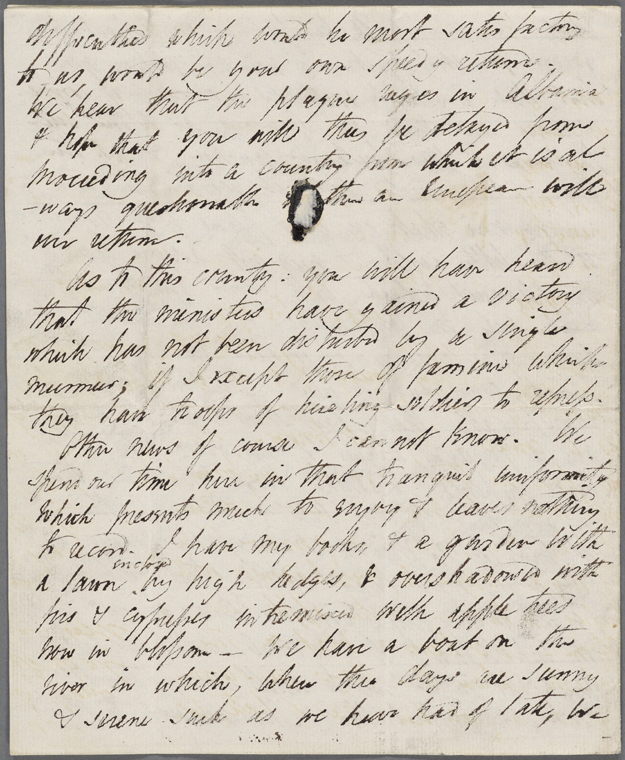 difficulties which would be most satisfactory
to us, would be your own speedy return.
We hear that the plague rages in Albania
& hope that you will thus be detayed from
proceeding into a country from which it is al
-ways questionable then an European will
ever return.
As to this country: you will have heard
that the ministers have gained a victory
which has not been disturbed by a single
murmur; if I except those of famine which
they have troops of hireling soldiers to repress.
Other news of course I cannot know. We
spend our time here in that tranquil uniformity
which presents much to enjoy & leaves nothing
to record. I have my books, & a garden with
a lawn enclosed by high hedges, & overshadowed with
firs & cypresses intermixed with apple trees
now in blossom — We have a boat on the
river in which, when the days are sunny
& serene such as we have had of late, we